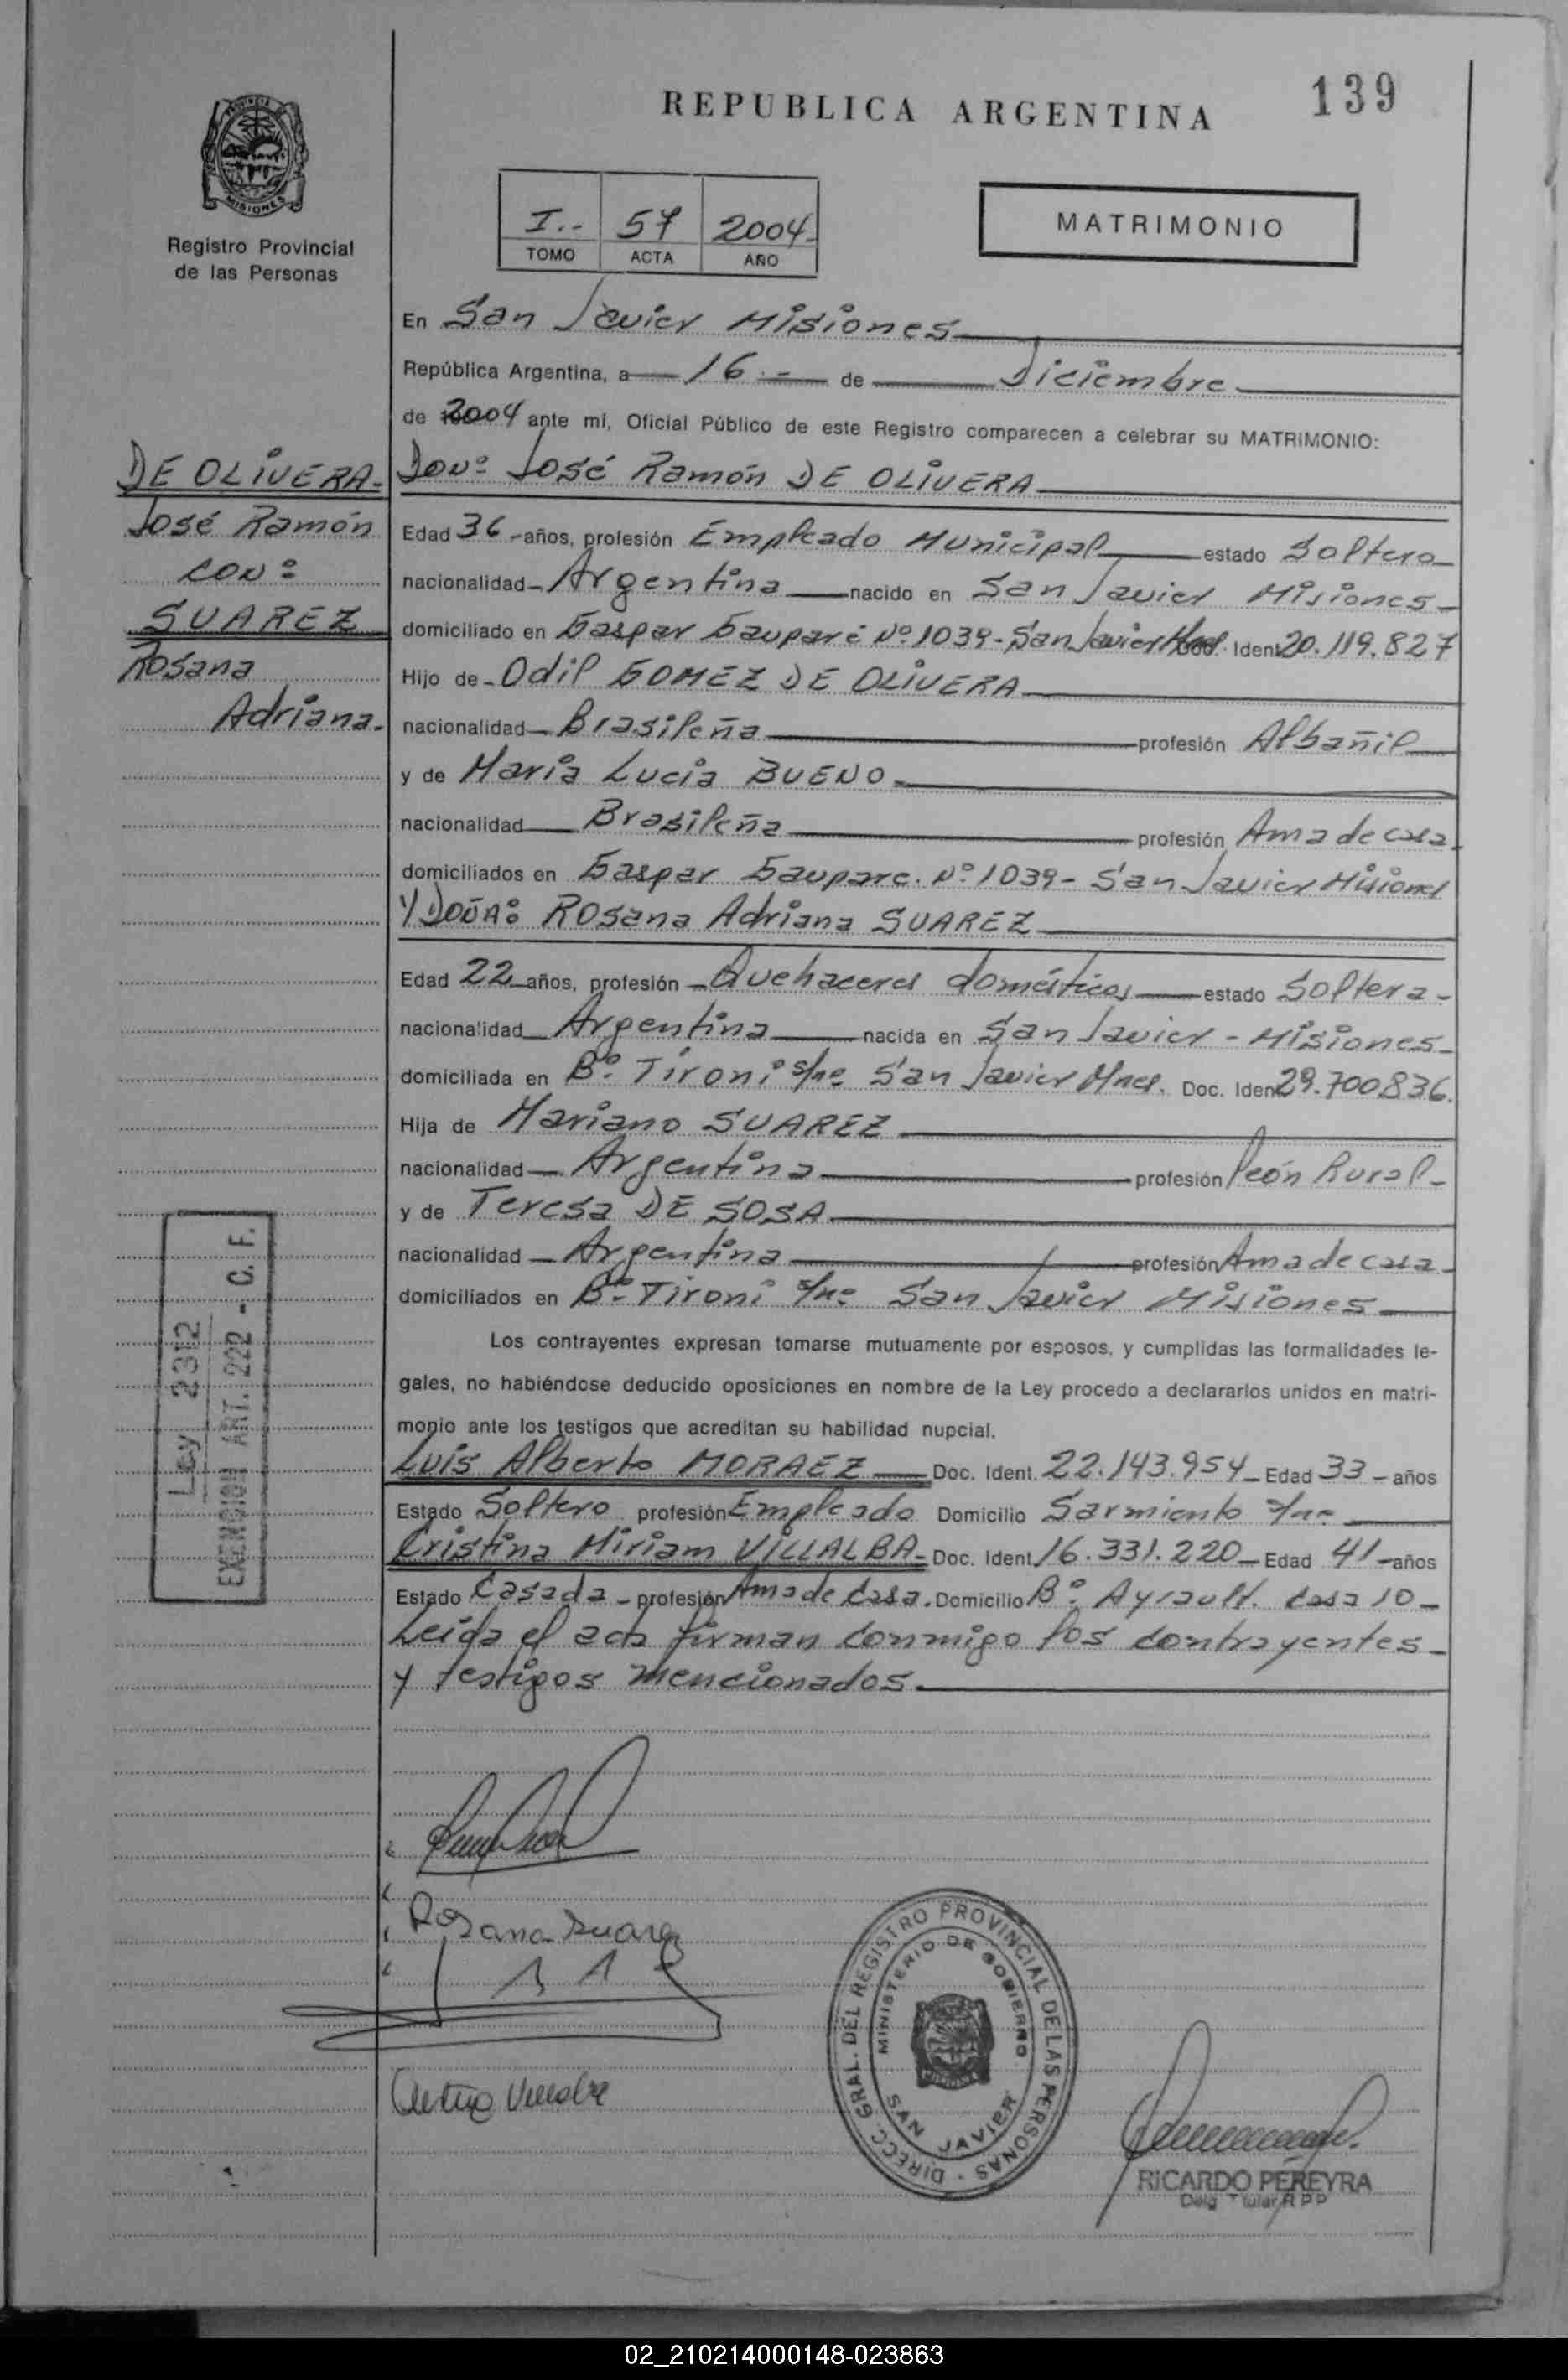 REPUBLICA ARGENTINA
139
MISIONES
Registro Provincial
de las Personas
I.- 57 2004.
TOMO ACTA AÑO
MATRIMONIO
En San Javier Misiones
República Argentina, a 16.- de Diciembre
de 2004 ante mi, Oficial Público de este Registro comparecen a celebrar su MATRIMONIO:
DE OLIVERA-
José Ramón
CON:
SUAREZ
Rosana
Adriana.
DON: José Ramón DE OLIVERA
Edad 36-años, profesión Empleado Municipal estado Soltero
nacionalidad Argentina nacido en San Javier Misiones
domiciliado en Gaspar Gauparé Nº 1039-San Javier Ident 20.119.827
Hijo de Odil GOMEZ DE OLIVERA
nacionalidad Brasileña profesión Albañil
y de Maria Lucia BUENO
nacionalidad Brasileña profesión Ama de casa.
domiciliados en Gaspar Gauparé. Nº 1039- San Javier Misiones
Y DOÑA: Rosana Adriana SUAREZ
Edad 22 años, profesión Quehaceres domésticos estado Soltera-
nacionalidad Argentina nacida en San Javier - Misiones-
domiciliada en Bº Tironi s/nº San Javier Mnes. Doc. Ident 29.700836.
Hija de Mariano SUAREZ
nacionalidad Argentina profesión Peón Rural-
y de Teresa DE SOSA
nacionalidad Argentina profesión Ama de casa.
domiciliados en Bº Tironi s/nº San Javier Misiones
Los contrayentes expresan tomarse mutuamente por esposos, y cumplidas las formalidades le-
gales, no habiéndose deducido oposiciones en nombre de la Ley procedo a declararlos unidos en matri-
monio ante los testigos que acreditan su habilidad nupcial.
Luis Alberto MORAEZ Doc. Ident. 22.143.954 Edad 33 - años
Estado Soltero profesión Empleado Domicilio Sarmiento s/nº
Cristina Miriam VILLALBA- Doc. Ident. 16.331.220 Edad 41-años
Estado Casada - profesión Ama de Casa. Domicilio Bº Ayrault. Casa 10-
Leída el acta firman conmigo los contrayentes-
y testigos mencionados.
Ley 2312
EXENCION ART. 222 - C. F.
Rosana Suarez
DIRECC. GRAL. DEL REGISTRO PROVINCIAL DE LAS PERSONAS -
MINISTERIO DE GOBIERNO
SAN JAVIER
RICARDO PEREYRA
Deleg Titular R P P
02_210214000148-023863